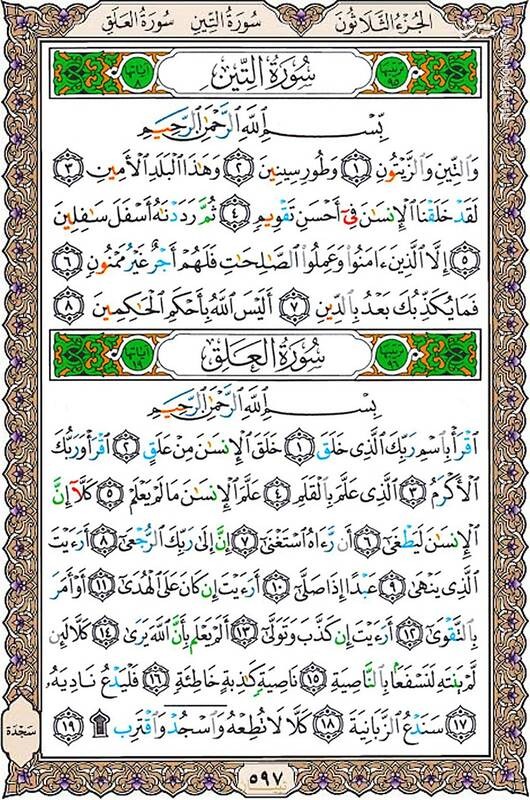 الجزء الثلاثون سورة التين سورة العلق
ترتيبها ٩٥ سُورَةُ التِّينِ آياتها ٨
بِسْمِ ٱللَّهِ ٱلرَّحْمَٰنِ ٱلرَّحِيمِ
وَٱلتِّينِ وَٱلزَّيْتُونِ ١ وَطُورِ سِينِينَ ٢ وَهَٰذَا ٱلْبَلَدِ ٱلْأَمِينِ ٣
لَقَدْ خَلَقْنَا ٱلْإِنسَٰنَ فِىٓ أَحْسَنِ تَقْوِيمٍ ٤ ثُمَّ رَدَدْنَٰهُ أَسْفَلَ سَٰفِلِينَ
٥ إِلَّا ٱلَّذِينَ ءَامَنُوا۟ وَعَمِلُوا۟ ٱلصَّٰلِحَٰتِ فَلَهُمْ أَجْرٌ غَيْرُ مَمْنُونٍ ٦
فَمَا يُكَذِّبُكَ بَعْدُ بِٱلدِّينِ ٧ أَلَيْسَ ٱللَّهُ بِأَحْكَمِ ٱلْحَٰكِمِينَ ٨
ترتيبها ٩٦ سُورَةُ العَلَقِ آياتها ١٩
بِسْمِ ٱللَّهِ ٱلرَّحْمَٰنِ ٱلرَّحِيمِ
ٱقْرَأْ بِٱسْمِ رَبِّكَ ٱلَّذِى خَلَقَ ١ خَلَقَ ٱلْإِنسَٰنَ مِنْ عَلَقٍ ٢ ٱقْرَأْ وَرَبُّكَ
ٱلْأَكْرَمُ ٣ ٱلَّذِى عَلَّمَ بِٱلْقَلَمِ ٤ عَلَّمَ ٱلْإِنسَٰنَ مَا لَمْ يَعْلَمْ ٥ كَلَّآ إِنَّ
ٱلْإِنسَٰنَ لَيَطْغَىٰٓ ٦ أَن رَّءَاهُ ٱسْتَغْنَىٰٓ ٧ إِنَّ إِلَىٰ رَبِّكَ ٱلرُّجْعَىٰٓ ٨ أَرَءَيْتَ
ٱلَّذِى يَنْهَىٰ ٩ عَبْدًا إِذَا صَلَّىٰٓ ١٠ أَرَءَيْتَ إِن كَانَ عَلَى ٱلْهُدَىٰٓ ١١ أَوْ أَمَرَ
بِٱلتَّقْوَىٰٓ ١٢ أَرَءَيْتَ إِن كَذَّبَ وَتَوَلَّىٰٓ ١٣ أَلَمْ يَعْلَم بِأَنَّ ٱللَّهَ يَرَىٰ ١٤ كَلَّا لَئِن
لَّمْ يَنتَهِ لَنَسْفَعًۢا بِٱلنَّاصِيَةِ ١٥ نَاصِيَةٍ كَٰذِبَةٍ خَاطِئَةٍ ١٦ فَلْيَدْعُ نَادِيَهُۥ
١٧ سَنَدْعُ ٱلزَّبَانِيَةَ ١٨ كَلَّا لَا تُطِعْهُ وَٱسْجُدْ وَٱقْتَرِب ۩ ١٩
سَجْدَة
٥٩٧